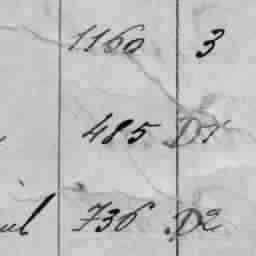 1160 3
485 D1
736 D2